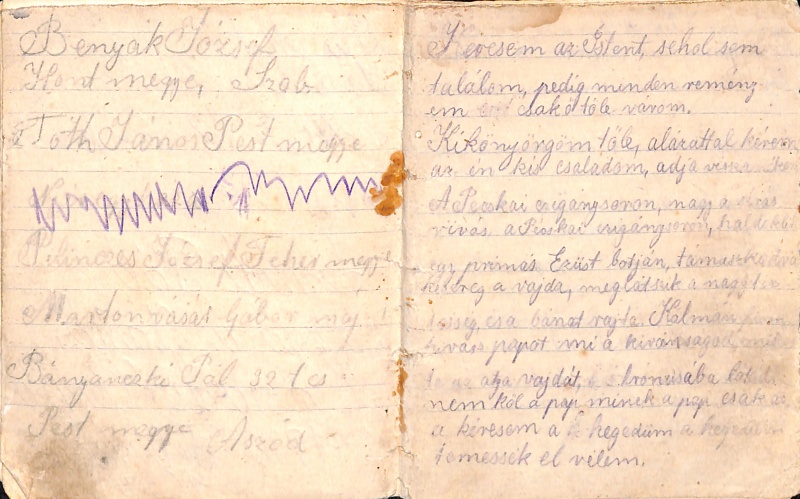 Benyák József
Hont megye, Szob
Tóth János Pest megye
Pelinczes József Feher megye
Martonvásár Gábor maj
Bányánczki Pál 32 1 cs
Pest megye Aszód
Keresem az Istent, sehol sem
talalom, pedig minden remény
em csak ő tőle várom.
Kikönyörgöm tőle, alázattal kérem
az én kis családom, adja vissza
A Pécskai czigánysoron, nagy a sirás
rivás, a Pécskai czigánysoron, haldokl
egy primás Ezüst botján, támaszkodva
kesereg a vajda, meglátszik a nagy
ság és a bánat rajta. Kálmán
hivass papot mi a kivánságod,
az atya vajdát, koronásába
nem köl a pap minek a pap csak az
a kérésem a hegedüm a hegedüm
temessék el vélem.